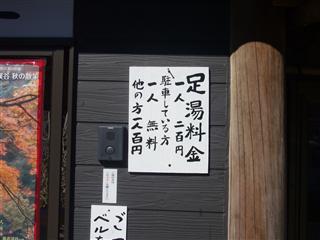 足湯料金
一人 二百円
駐車している方
一人 無料
他の方一人百円
渓谷 秋の散策
ご
ベル